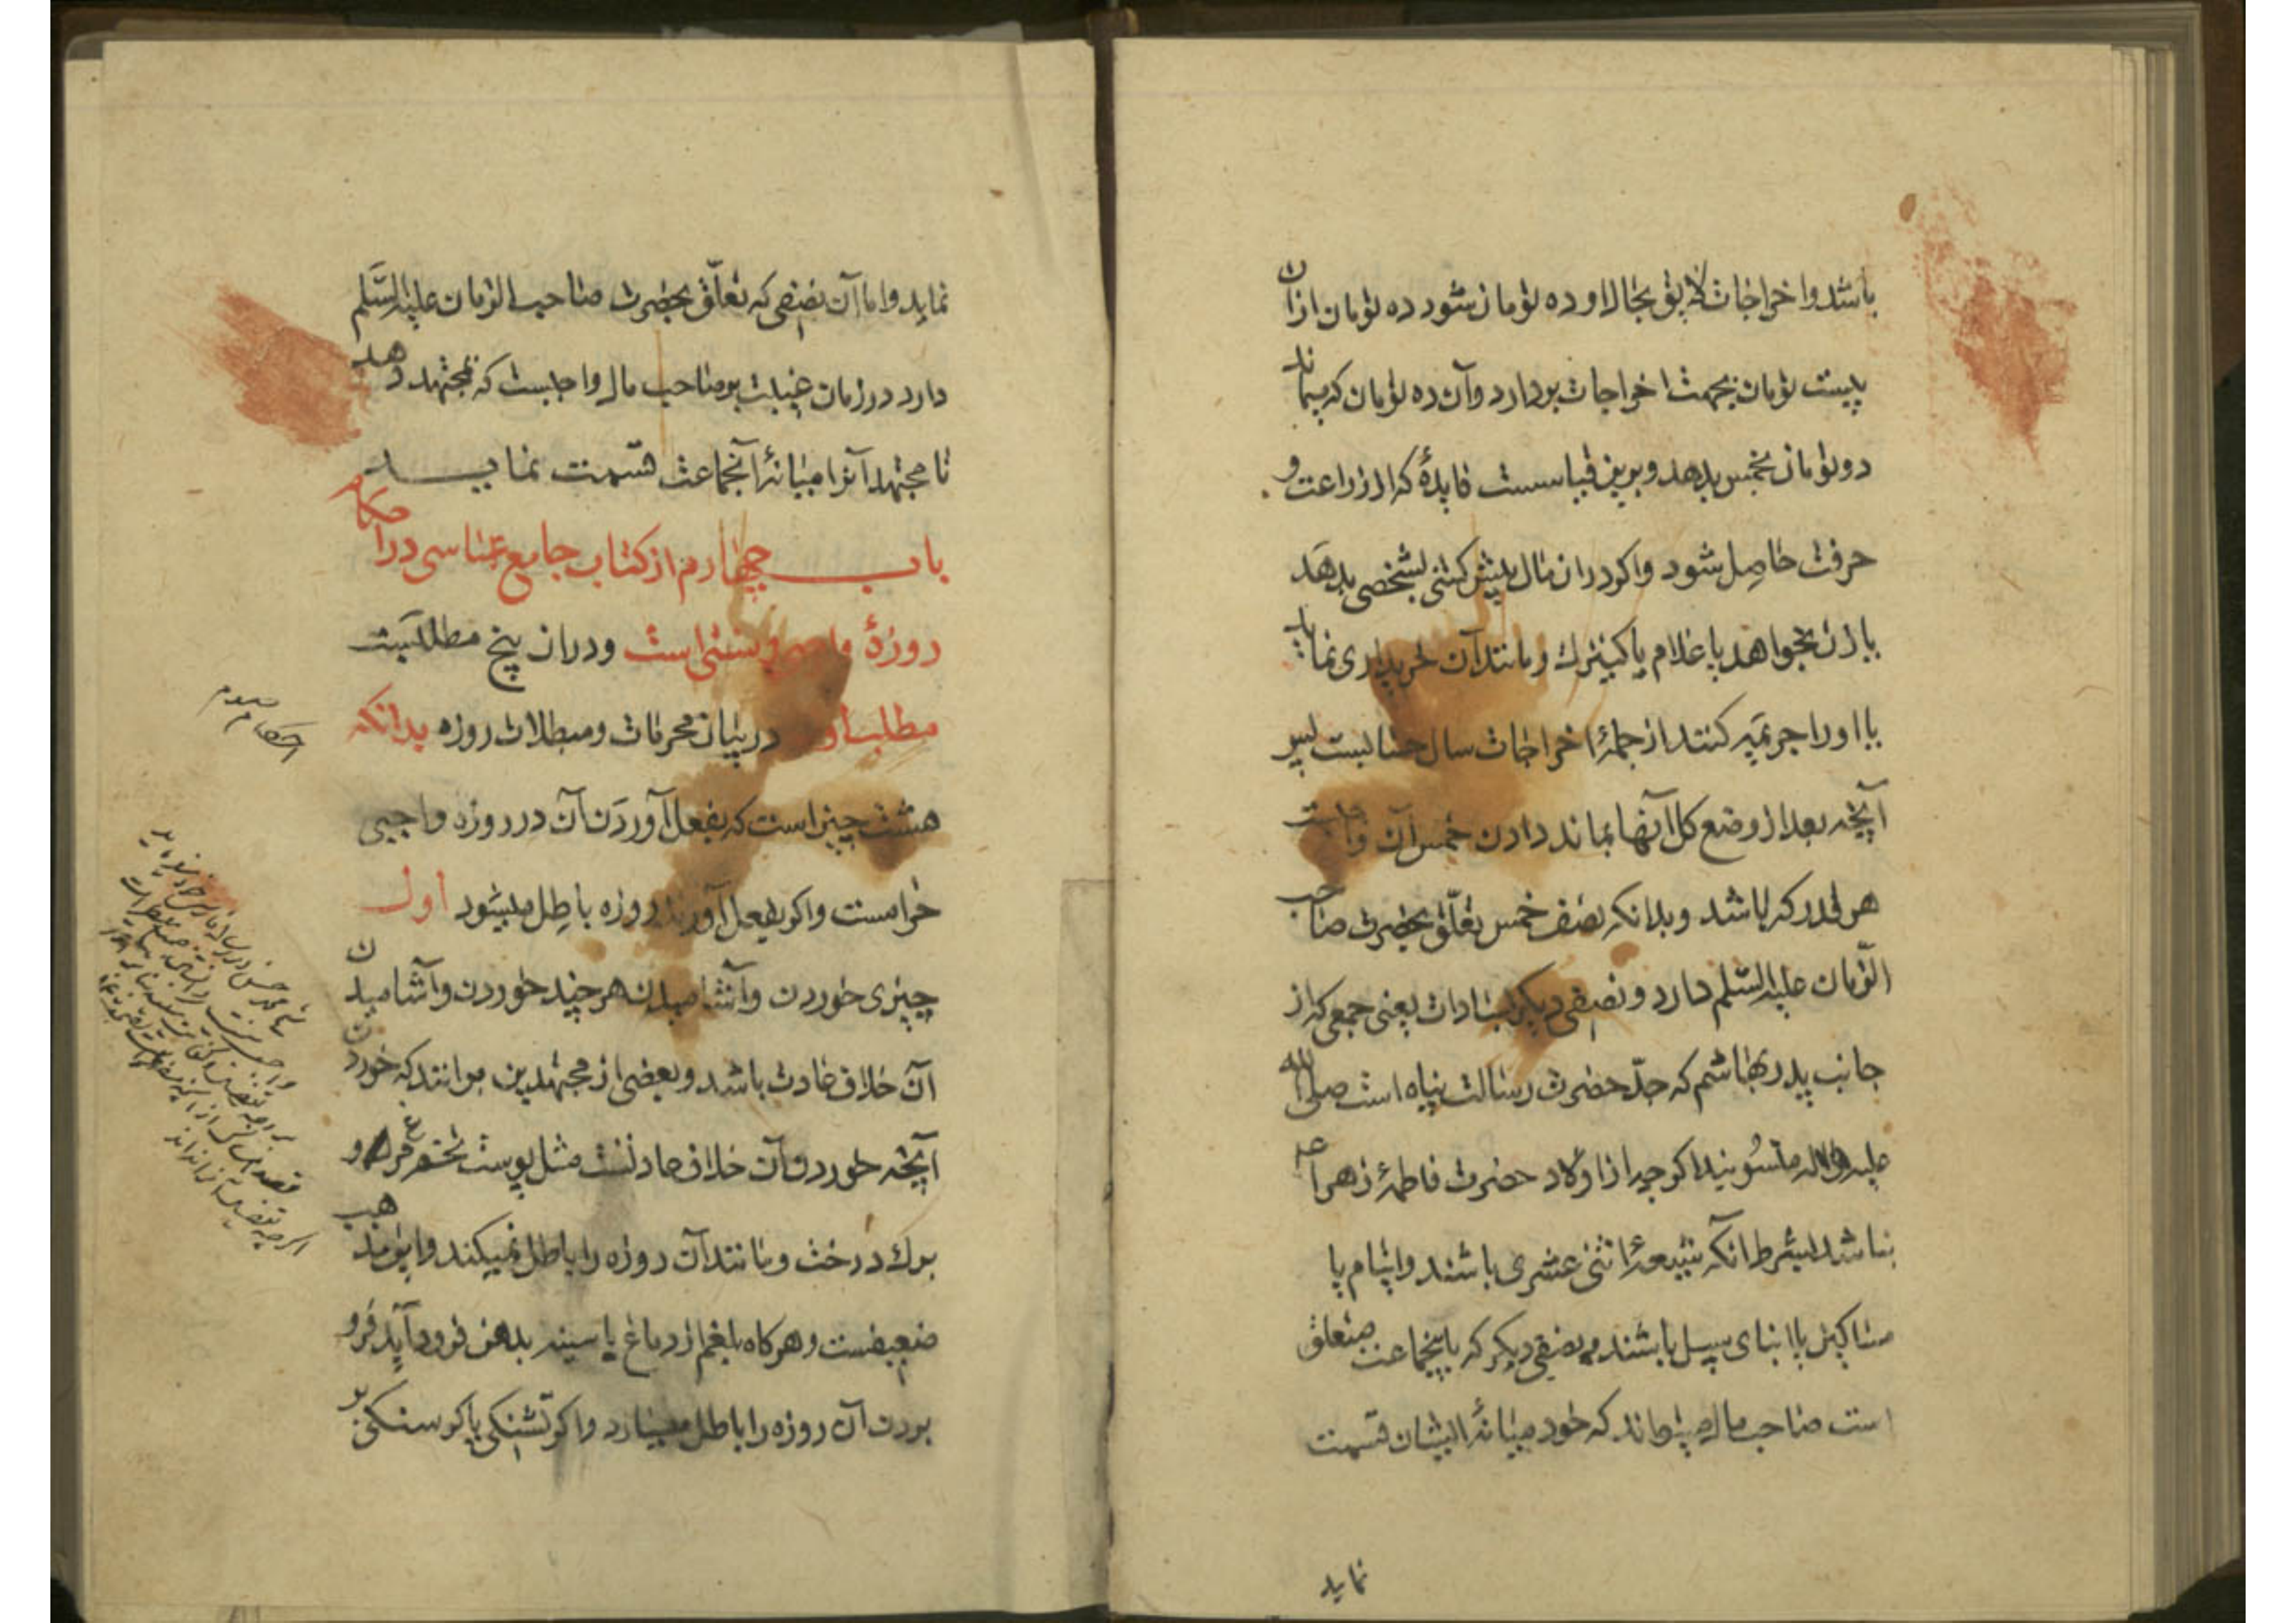 باشد و اخراجات لایق بحال او ده تومان شود ده تومان از آن
بیست تومان بجهت اخراجات بردارد و آن ده تومان که میماند
دو تومان خمس بدهد و برین قیاسست فایدهٔ که از زراعت و
حرفت حاصل شود و اکر در ان سال پیش کشی بشخصی بدهد
یا زن بخواهد یا غلام یا کنیزک و مانند آن خریداری نماید
یا او را جریمه کنند از جملهٔ اخراجات سال حسابست پس
آنچه بعد از وضع کل آنها بماند دادن خمس آن واجبست
هر قدر که باشد و بدانکه نصف خمس تعلّق بحضرت صاحب
الزّمان علیه السّلم دارد و نصفی دیکر بسادات یعنی جمعی که از
جانب پدر بهاشم که جدّ حضرت رسالت پناه است صلی الله
علیه و اله منسوبند اکر چه از اولاد حضرت فاطمهٔ زهرا ع
نباشد بشرط آنکه شیعهٔ اثنی عشری باشند و ایتام یا
مساکین یا ابنای سبیل باشند و نصفی دیکر که باینجماعت متعلق
است صاحب مال میتواند که خود میانهٔ ایشان قسمت
نماید
نماید و اما آن نصفی که تعلّق بحضرت صاحب الزمان علیه السّلم
دارد در زمان غیبت بر صاحب مال واجبست که بمجتهد دهد
تا مجتهد آنرا میانهٔ آنجماعت قسمت نماید
باب چهارم از کتاب جامع عباسی در احکام
روزهٔ واجبی و سنتی است و در ان پنج مطلبست
مطلب اول در بیان محرمات و مبطلات روزه بدانکه
هشت چیز است که بفعل آوردن آن در روزه واجبی
حرامست و اکر بفعل آورند روزه باطل میشود اول
چیزی خوردن و آشامیدن هر چند خوردن و آشامیدن
آن خلاف عادت باشد و بعضی از مجتهدین برانند که خوردن
آنچه خوردن آن خلاف عادتست مثل پوست تخم مرغ و
برک درخت و مانند آن روزه را باطل نمیکند و این مذهب
ضعیفست و هرکاه بلغم از دماغ یا سینه بدهن فرود آید فرو
بردن آن روزه را باطل میسازد و اکر تشنکی یا کرسنکی بر
احکام صوم